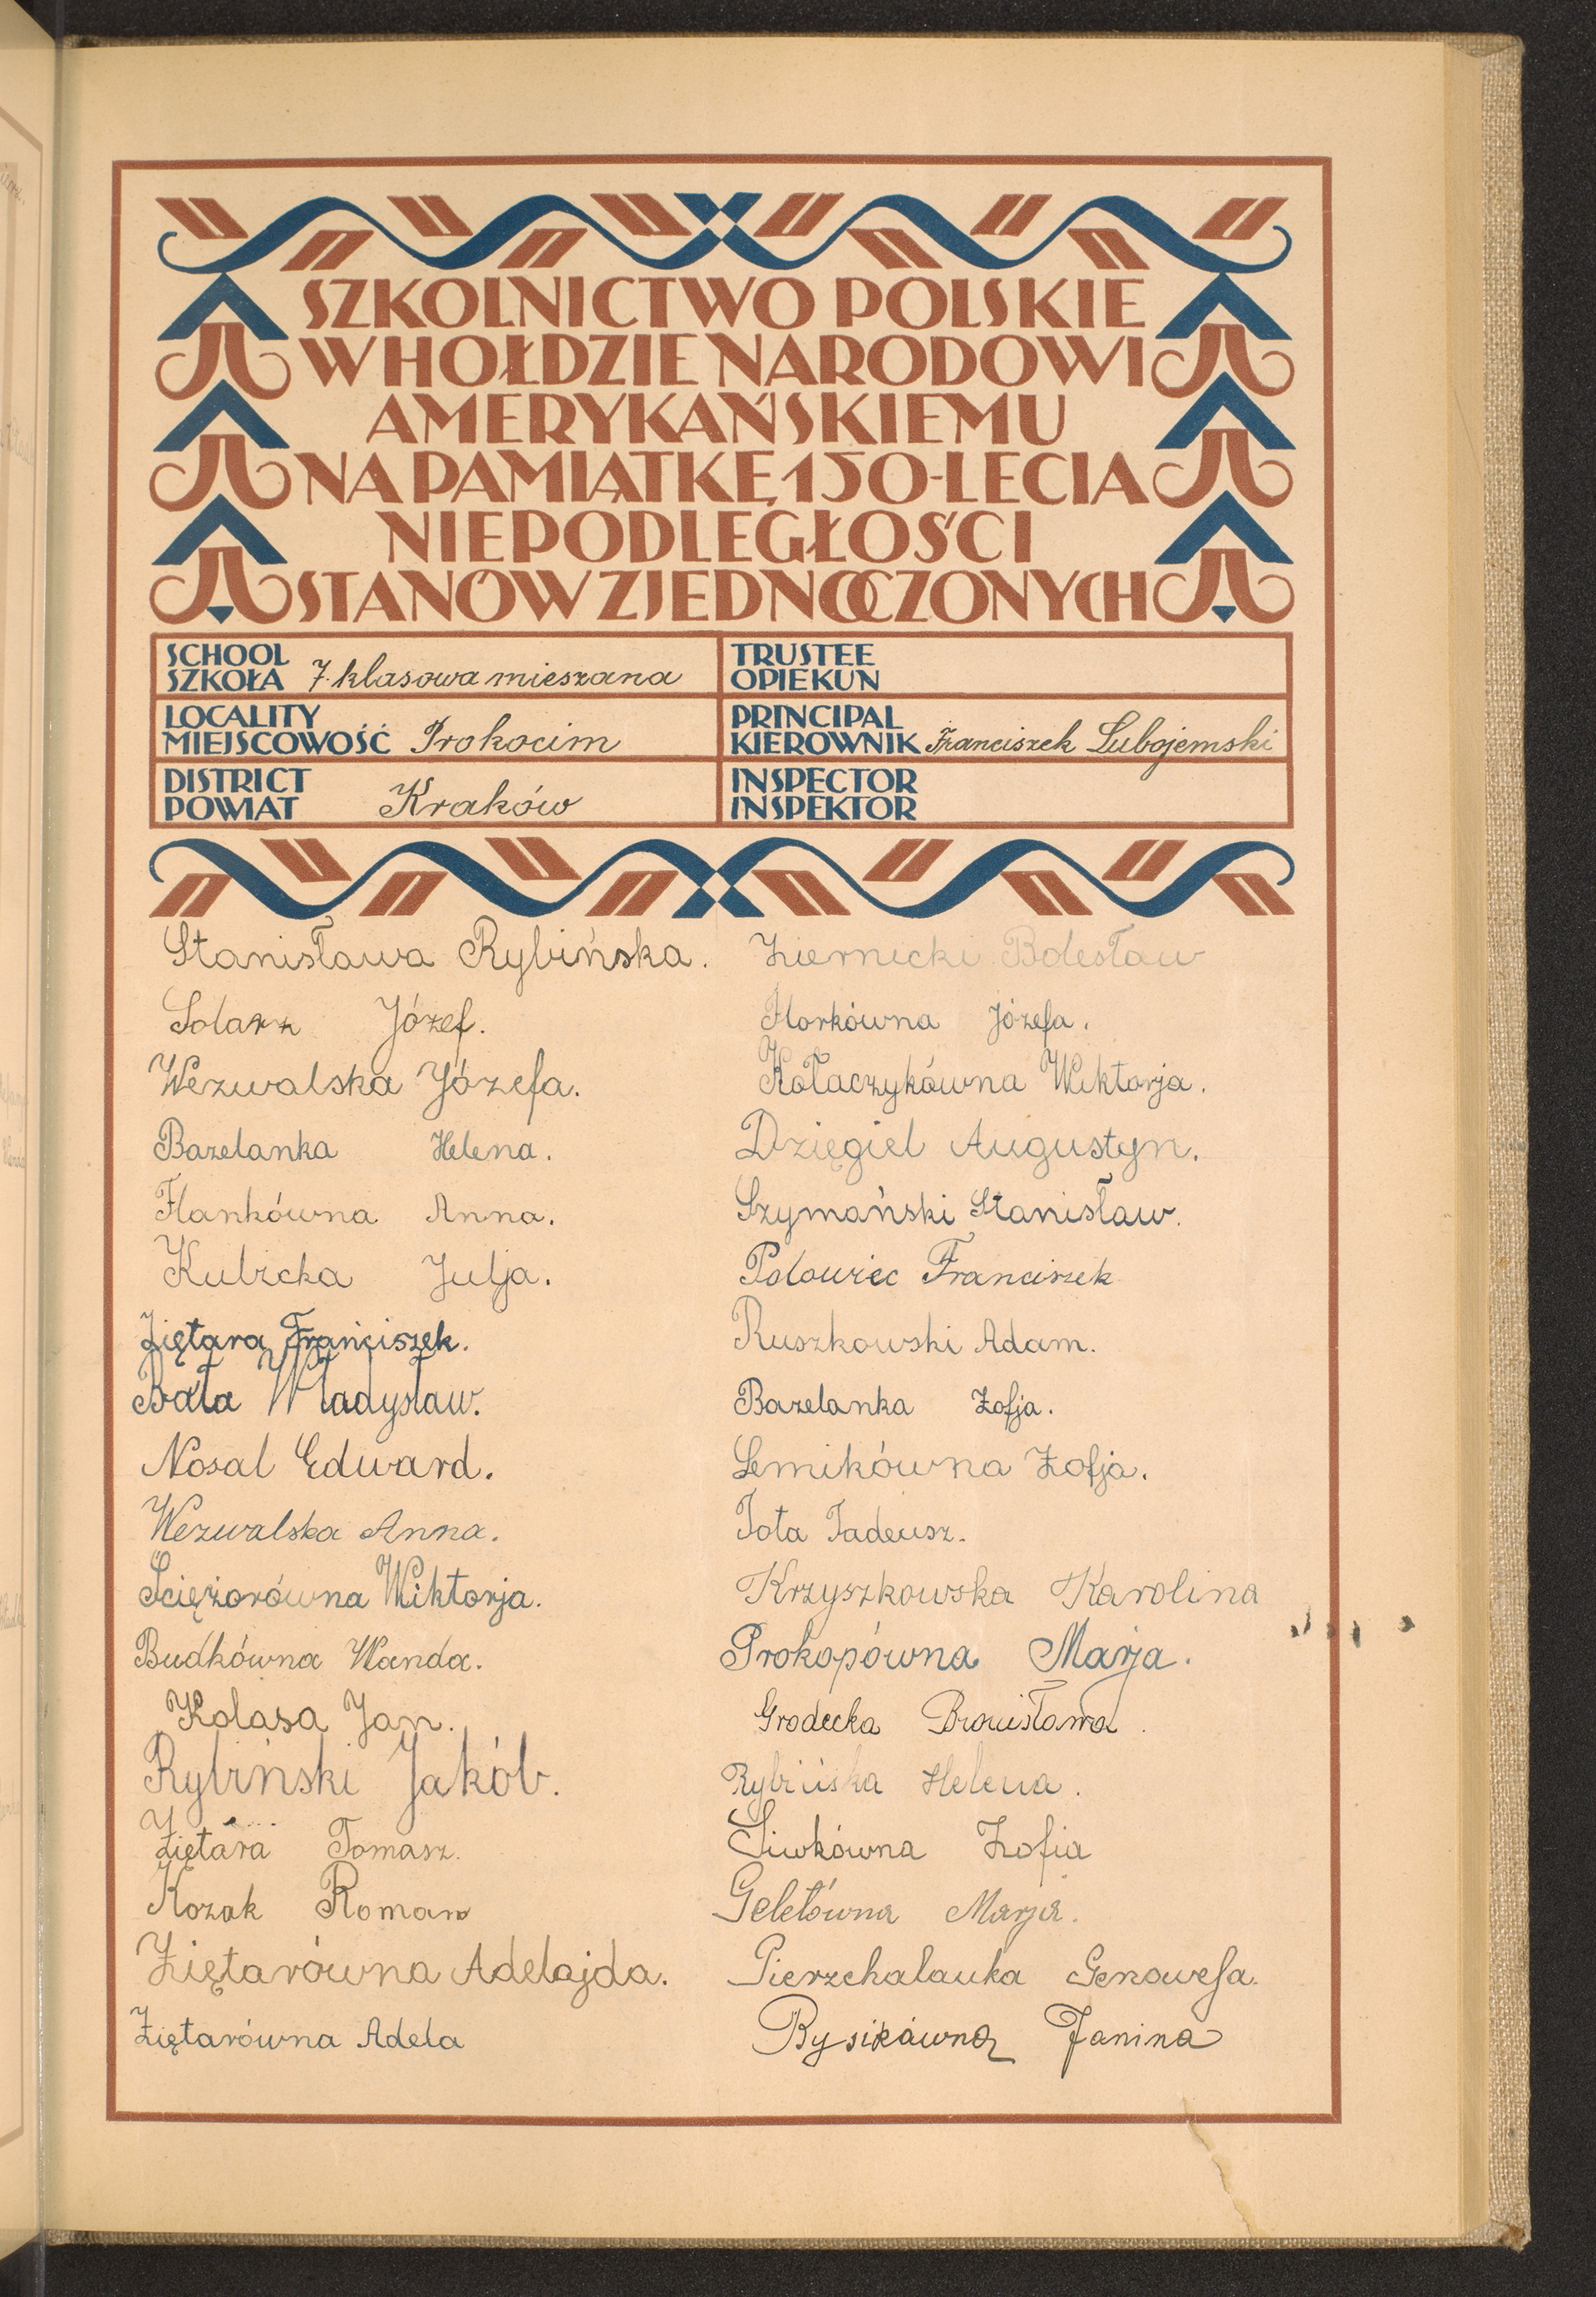 SZKOLNICTWO POLSKIE
W HOŁDZIE NARODOWI
AMERYKAŃSKIEMU
NA PAMIĄTKĘ 150-LECIA
NIEPODLEGŁOŚCI
STANÓW ZJEDNOCZONYCH
SCHOOL
SZKOŁA 7. klasowa mieszana
LOCALITY
MIEJSCOWOŚĆ Prokocim
DISTRICT
POWIAT Kraków
TRUSTEE
OPIEKUN
PRINCIPAL
KIEROWNIK Franciszek Lubojemski
INSPECTOR
INSPEKTOR
Stanisława Rybińska.
Solarz Józef.
Wezwalska Józefa.
Bazelanka Helena.
Flankówna Anna.
Kubicka Julja.
Ziętara Franciszek.
Bała Władysław.
Nosal Edward.
Wezwalska Anna.
Ściężorówna Wiktorja.
Budkówna Wanda.
Kolasa Jan.
Rybiński Jakób.
Ziętara Tomasz.
Kozak Roman
Ziętarówna Adelajda.
Ziętarówna Adela
Ziernicki Bolesław
Florkówna Józefa.
Kołaczykówna Wiktorja.
Dzięgiel Augustyn.
Szymański Stanisław.
Polowiec Franciszek
Ruszkowski Adam.
Bazelanka Zofja.
Lemikówna Zofja.
Tota Tadeusz.
Krzyszkowska Karolina
Prokopówna Marja.
Grodecka Bronisława.
Rybińska Helena.
Siwkówna Zofia
Geletówna Marja.
Pierzchalanka Genowefa.
Rysikówna Janina